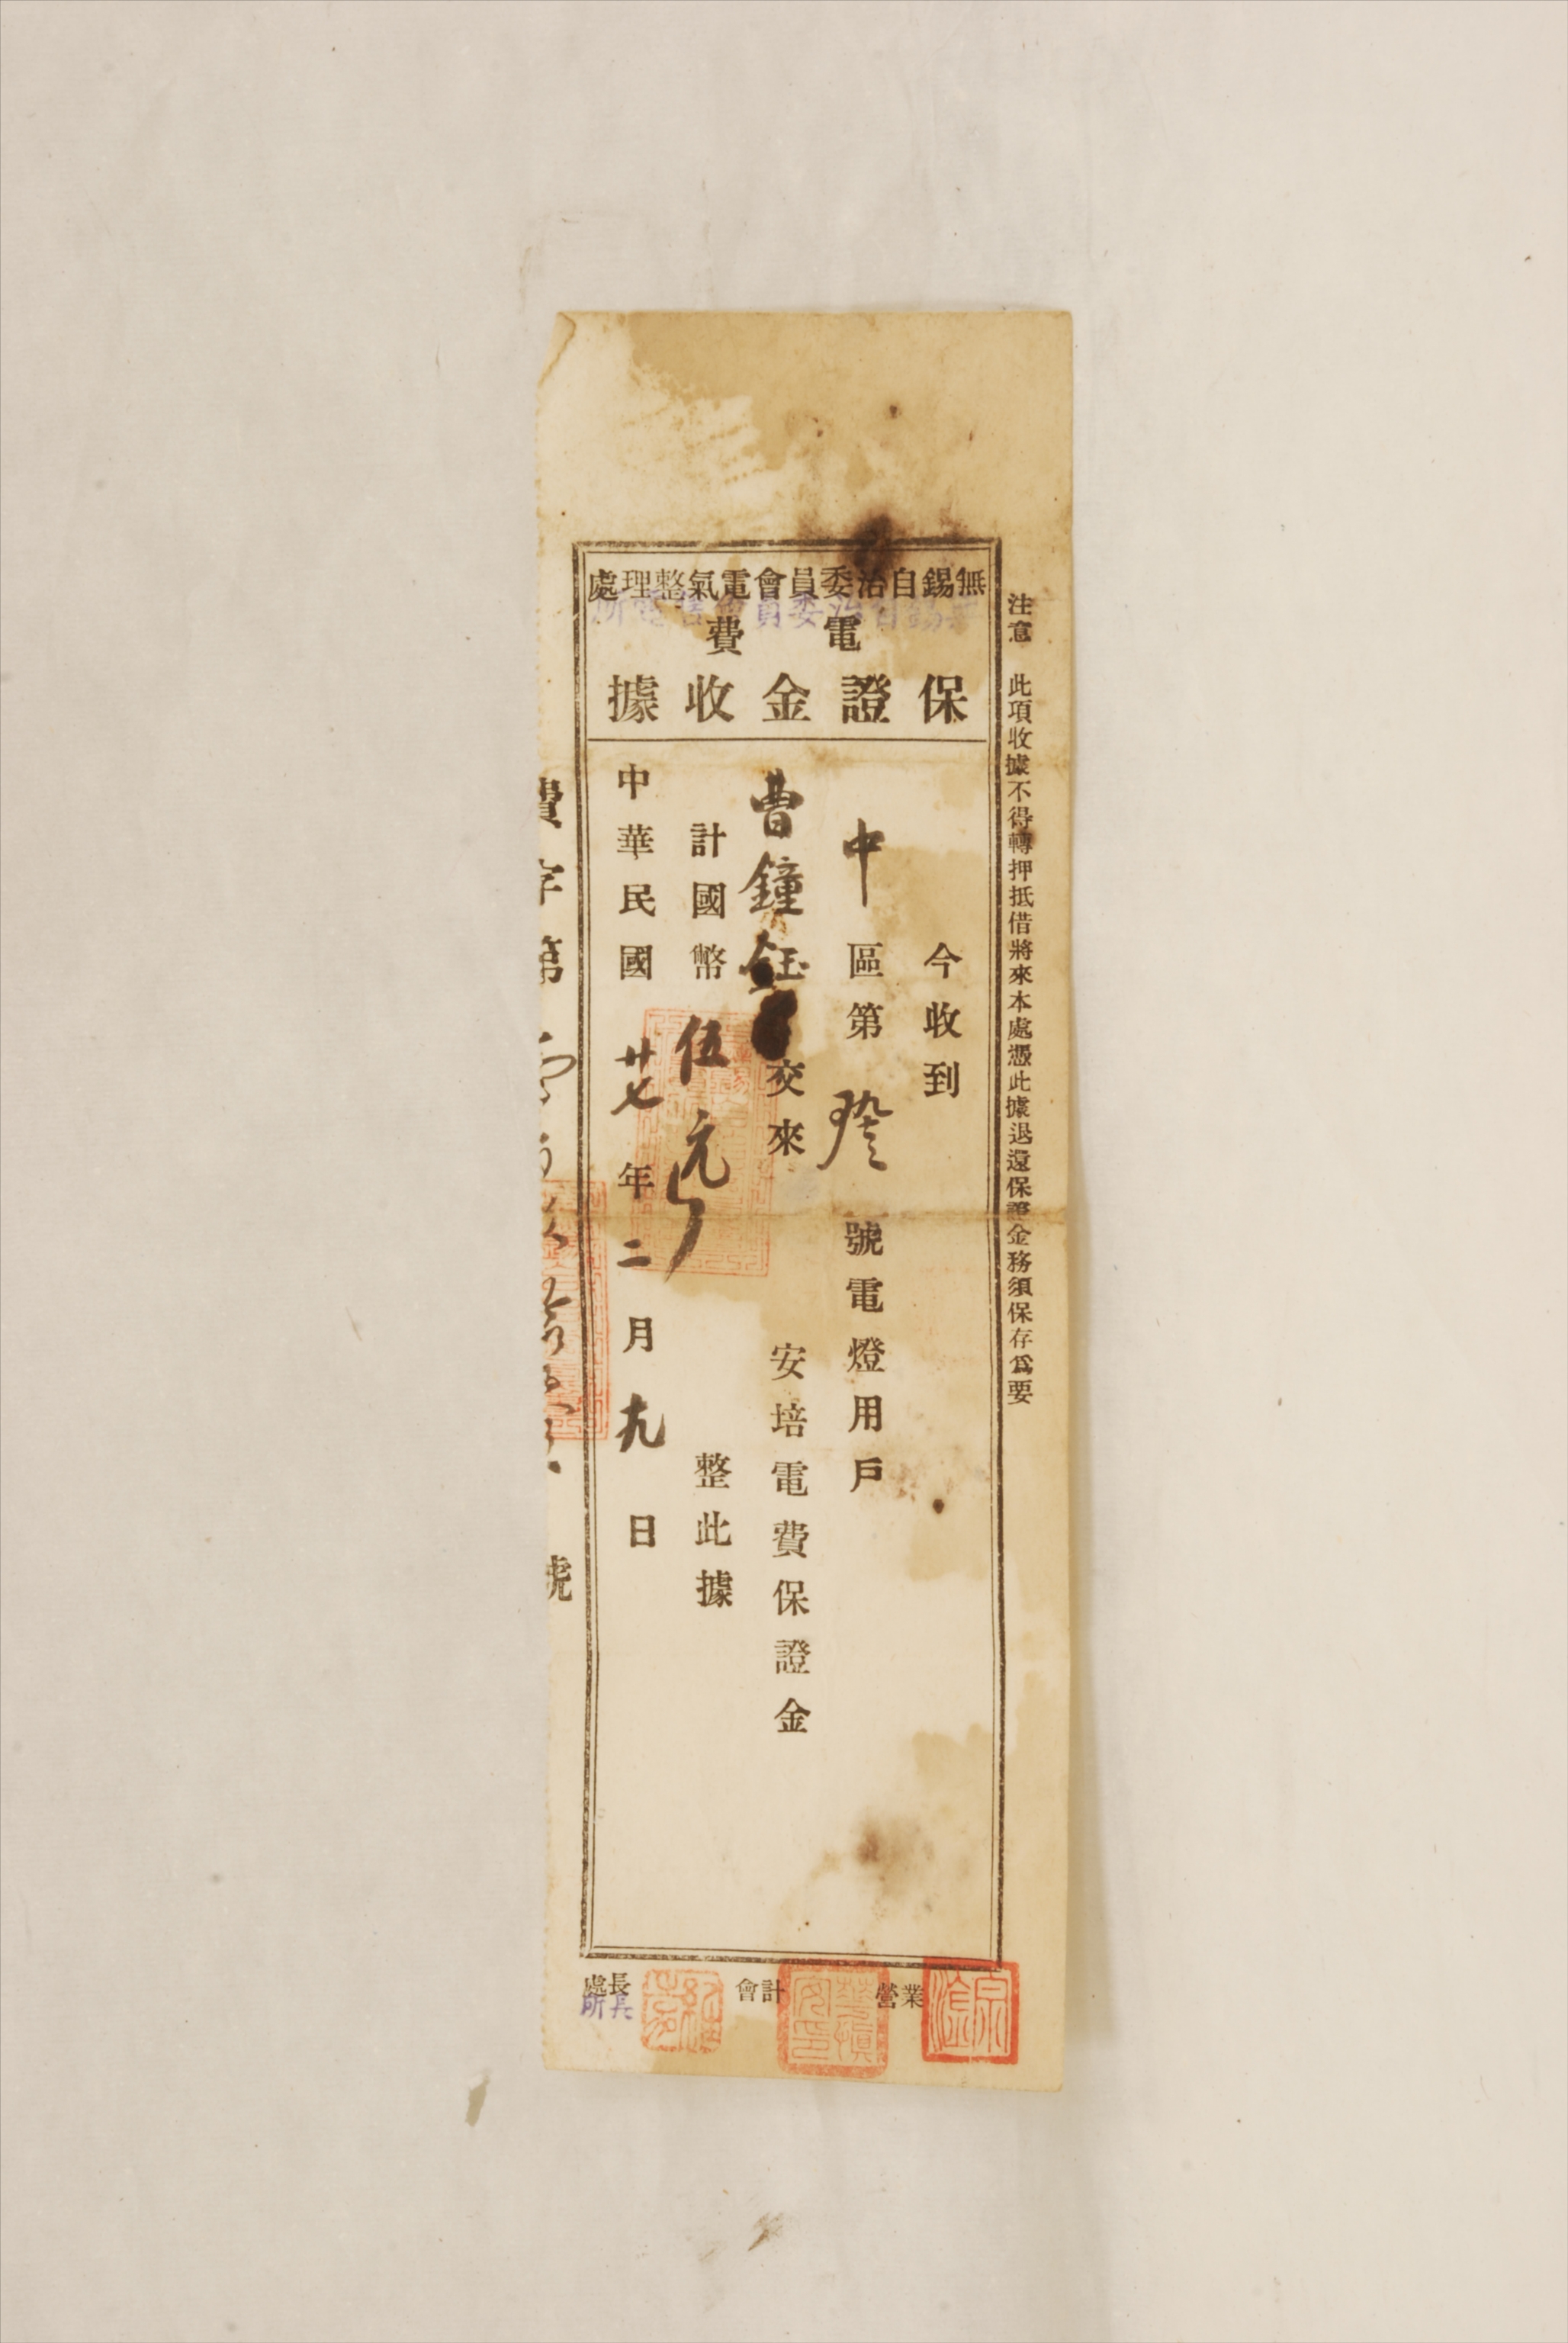 注意　此項收據不得轉押抵借將來本處憑此據退還保證金務須保存爲要
無錫自治委員會電氣整理處
無錫自治委員會售電所
電費
保證金收據
今收到
中區第　號電燈用戶
曹鐘鈺　交來　安培電費保證金
計國幣伍元　整此據
中華民國廿七年二月九日
費字第　號
營業
會計
處長
所長